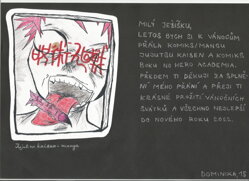 MILÝ JEŽÍŠKU,
LETOS BYCH SI K VÁNOCŮM
PŘÁLA KOMIKS/MANGU
JUJUTSU KAISEN A KOMIKS
BOKU NO HERO ACADEMIA.
PŘEDEM TI DĚKUJI ZA SPLNĚ-
NÍ MÉHO PŘÁNÍ A PŘEJI TI
KRÁSNÉ PROŽITÍ VÁNOČNÍCH
SVÁTKŮ A VŠECHNO NEJLEPŠÍ
DO NOVÉHO ROKU 2022.
Jujutsu kaisen - manga
DOMINIKA, 13